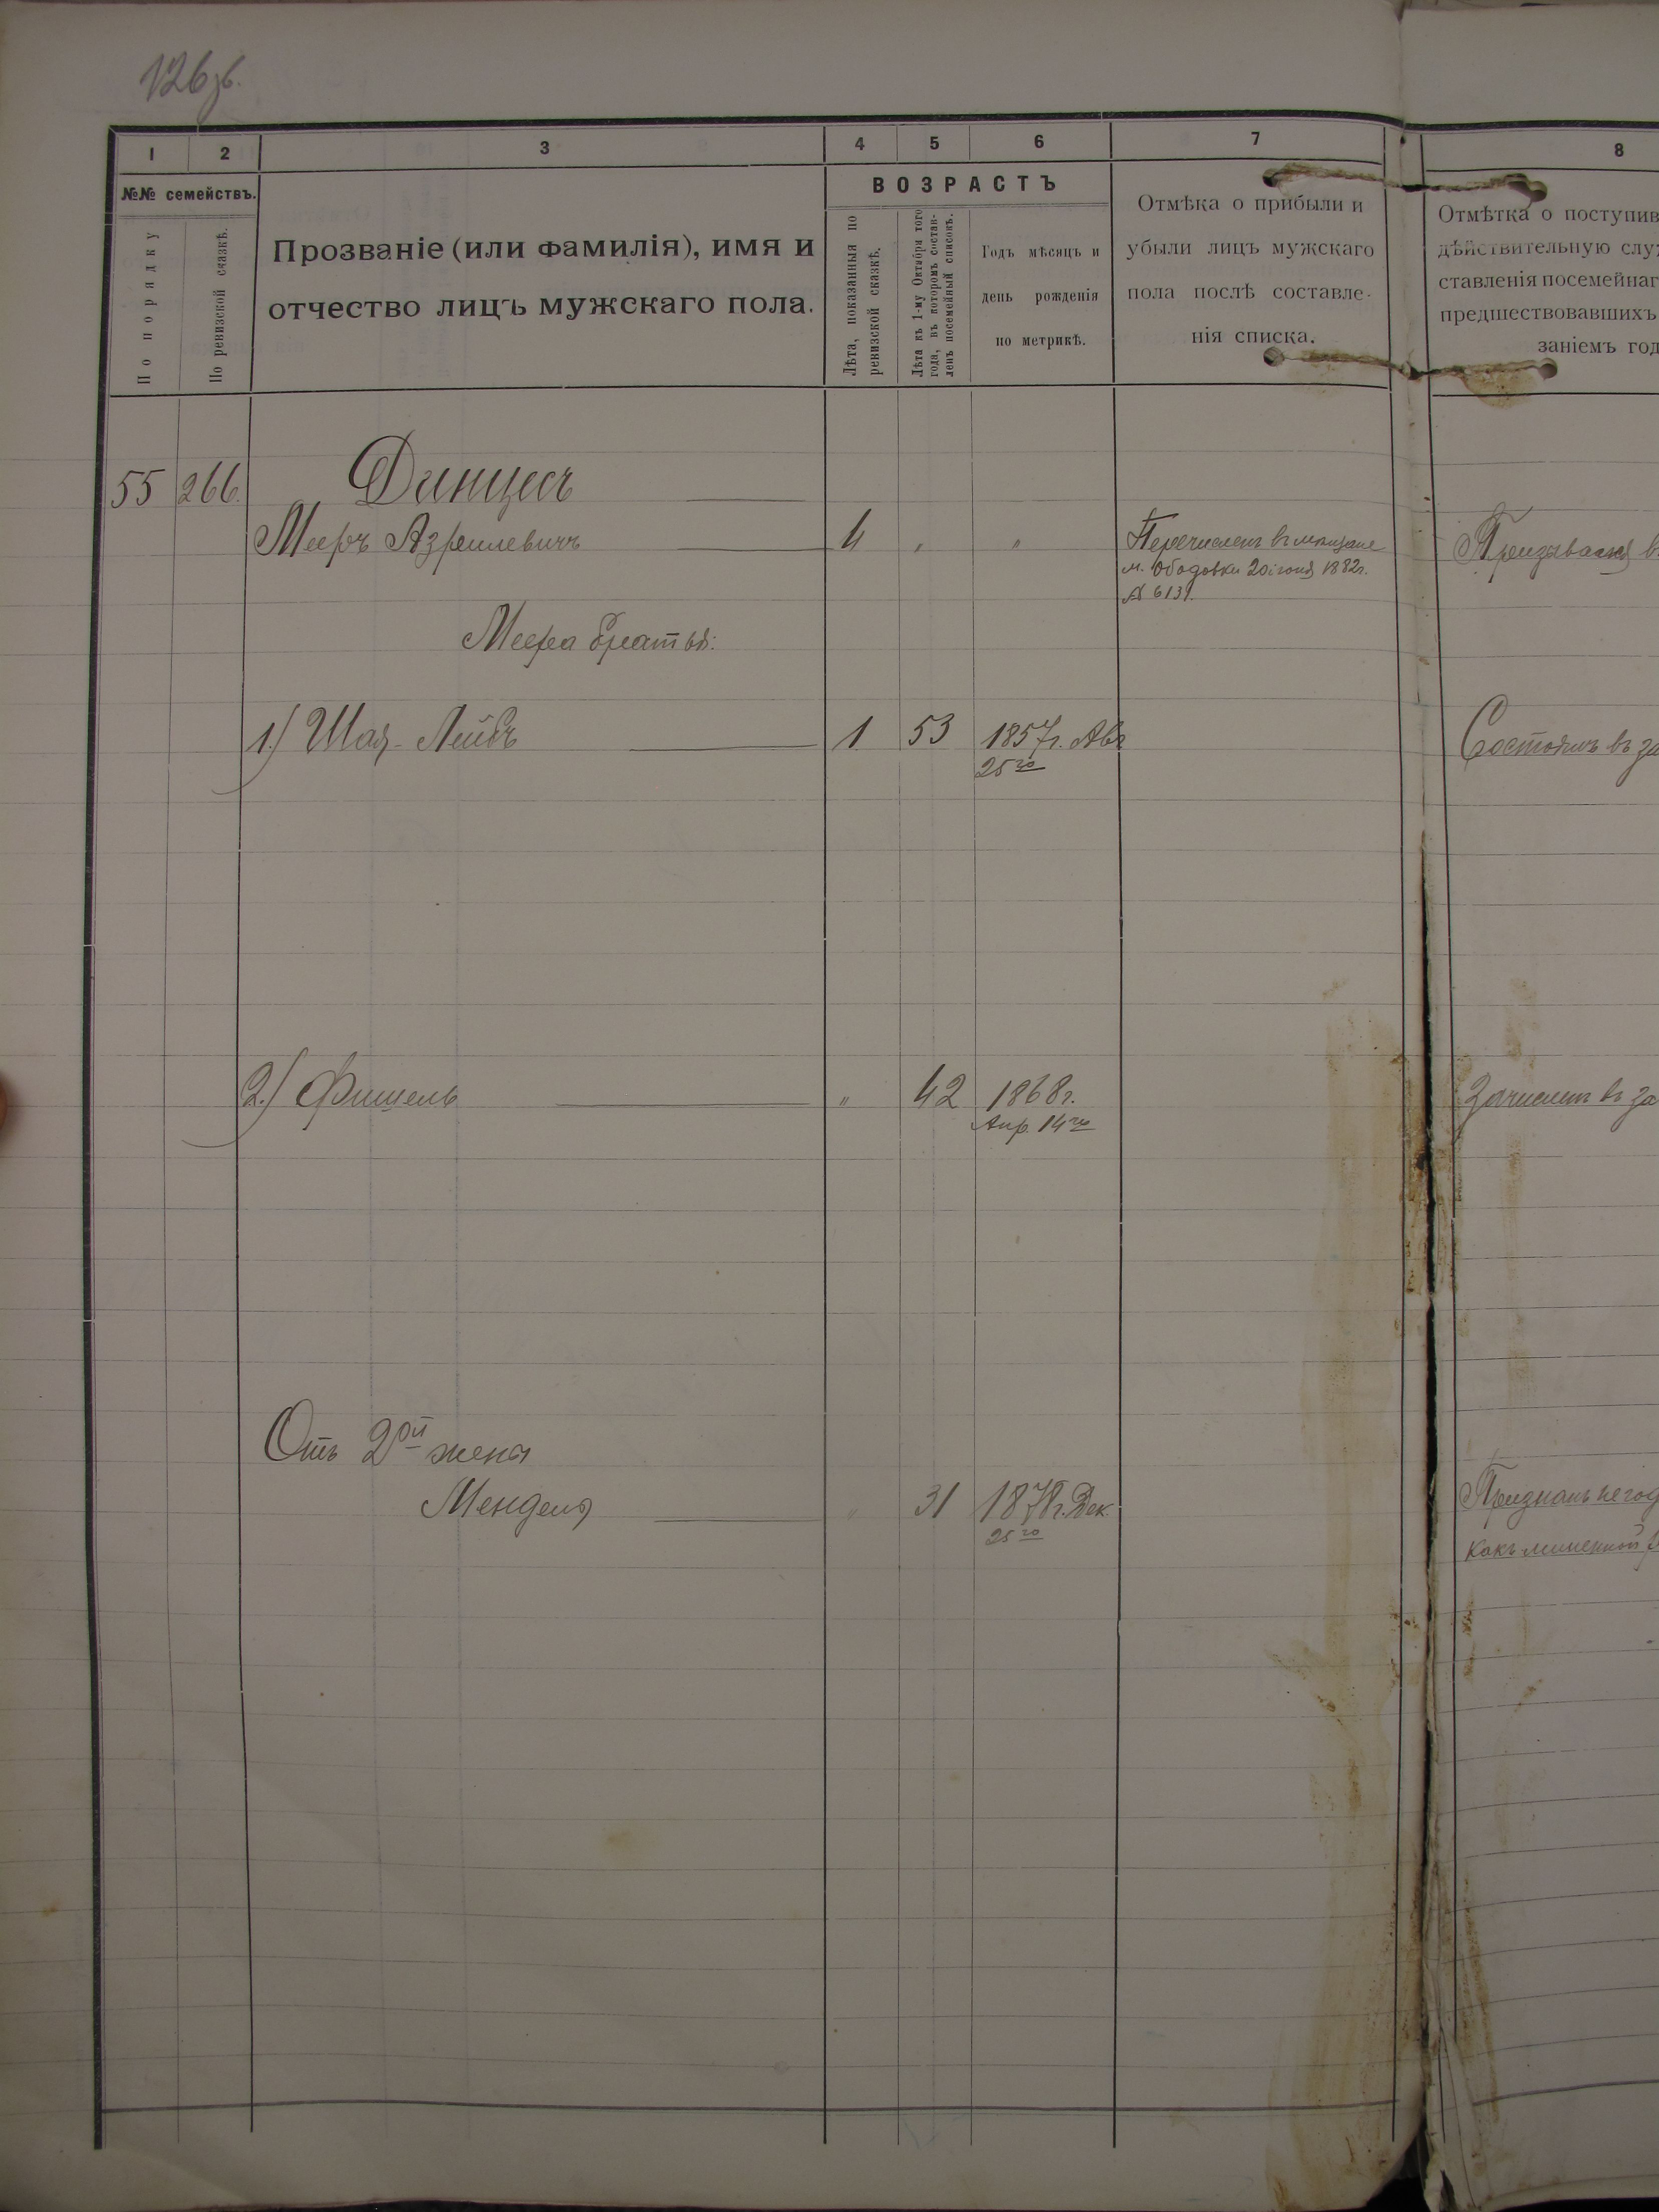 126 зв.
1 2 3 4 5 6 7 8
№№ семействъ.
По порядку
По ревизской сказкѣ.
Прозваніе (или фамилія), имя и
отчество лицъ мужскаго пола.
ВОЗРАСТЪ
Лѣта, показанныя по
ревизской сказкѣ.
Лѣта къ 1-му Октября того
года, въ которомъ состав-
ленъ посемейный списокъ.
Годъ мѣсяцъ и
день рожденія
по метрикѣ.
Отмѣка о прибыли и
убыли лицъ мужскаго
пола послѣ составле-
нія списка.
Отмѣтка о поступив
дѣйствительную слу
ставленія посемейнаг
предшествовавшихъ
заніемъ год
55 266. Динцесъ
Мееръ Азрилевичъ 4 " " Перечисленъ въ мѣщане
м. Ободовки 20 іюня 1882 г.
№ 6131.
Призывался в
Меера братья:
1.) Шая-Лейбъ 1 53 1857 г. Авг
25го
Состоитъ въ за
2.) Фишель " 42 1868 г.
Апр. 14го
Зачисленъ въ за
Отъ 2ой жены
Мендель " 31 1878 г. Дек.
25го
Признанъ негод